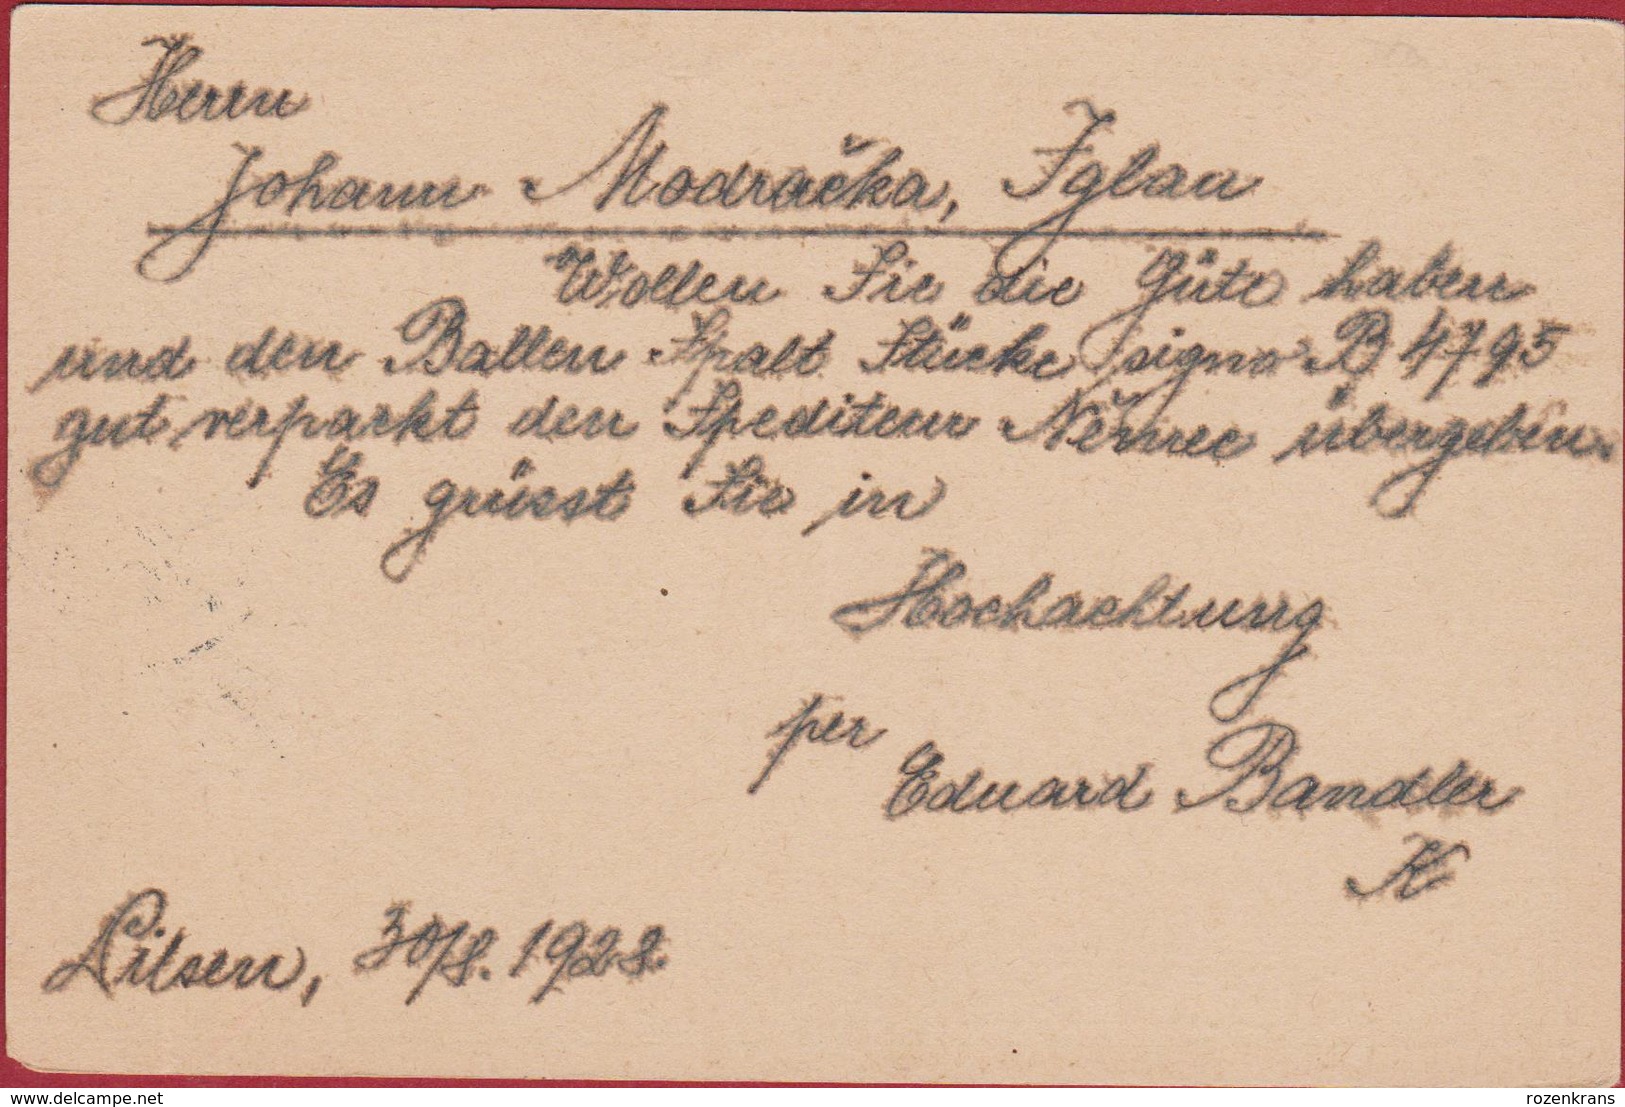 Herrn
Johann Modračka, Iglau
Wollen Sie die Güte haben
und den Ballen Spalt Stücke signo B 4795
gut verpackt den Spediteur Němec übergeben.
Es grüsst Sie in
Hochachtung
per
Eduard Bandler
K
Pilsen, 30/8. 1928.
delcampe.net
rozenkrans